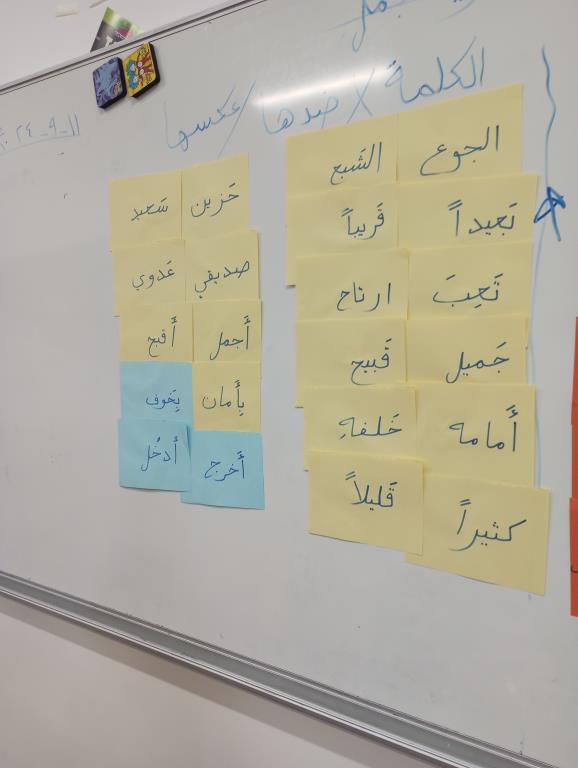 الكلمة / ضدها / عكسها
الجوع الشبع
بَعيداً قَريباً
تَعِبَ ارتاح
جَميل قَبيح
أَمامه خَلفهِ
كثيراً قَليلاً
حَزين سَعيد
صديقي عَدوي
أَجمل أَقبح
بِأَمان بِخوف
أَخرج أَدخُل